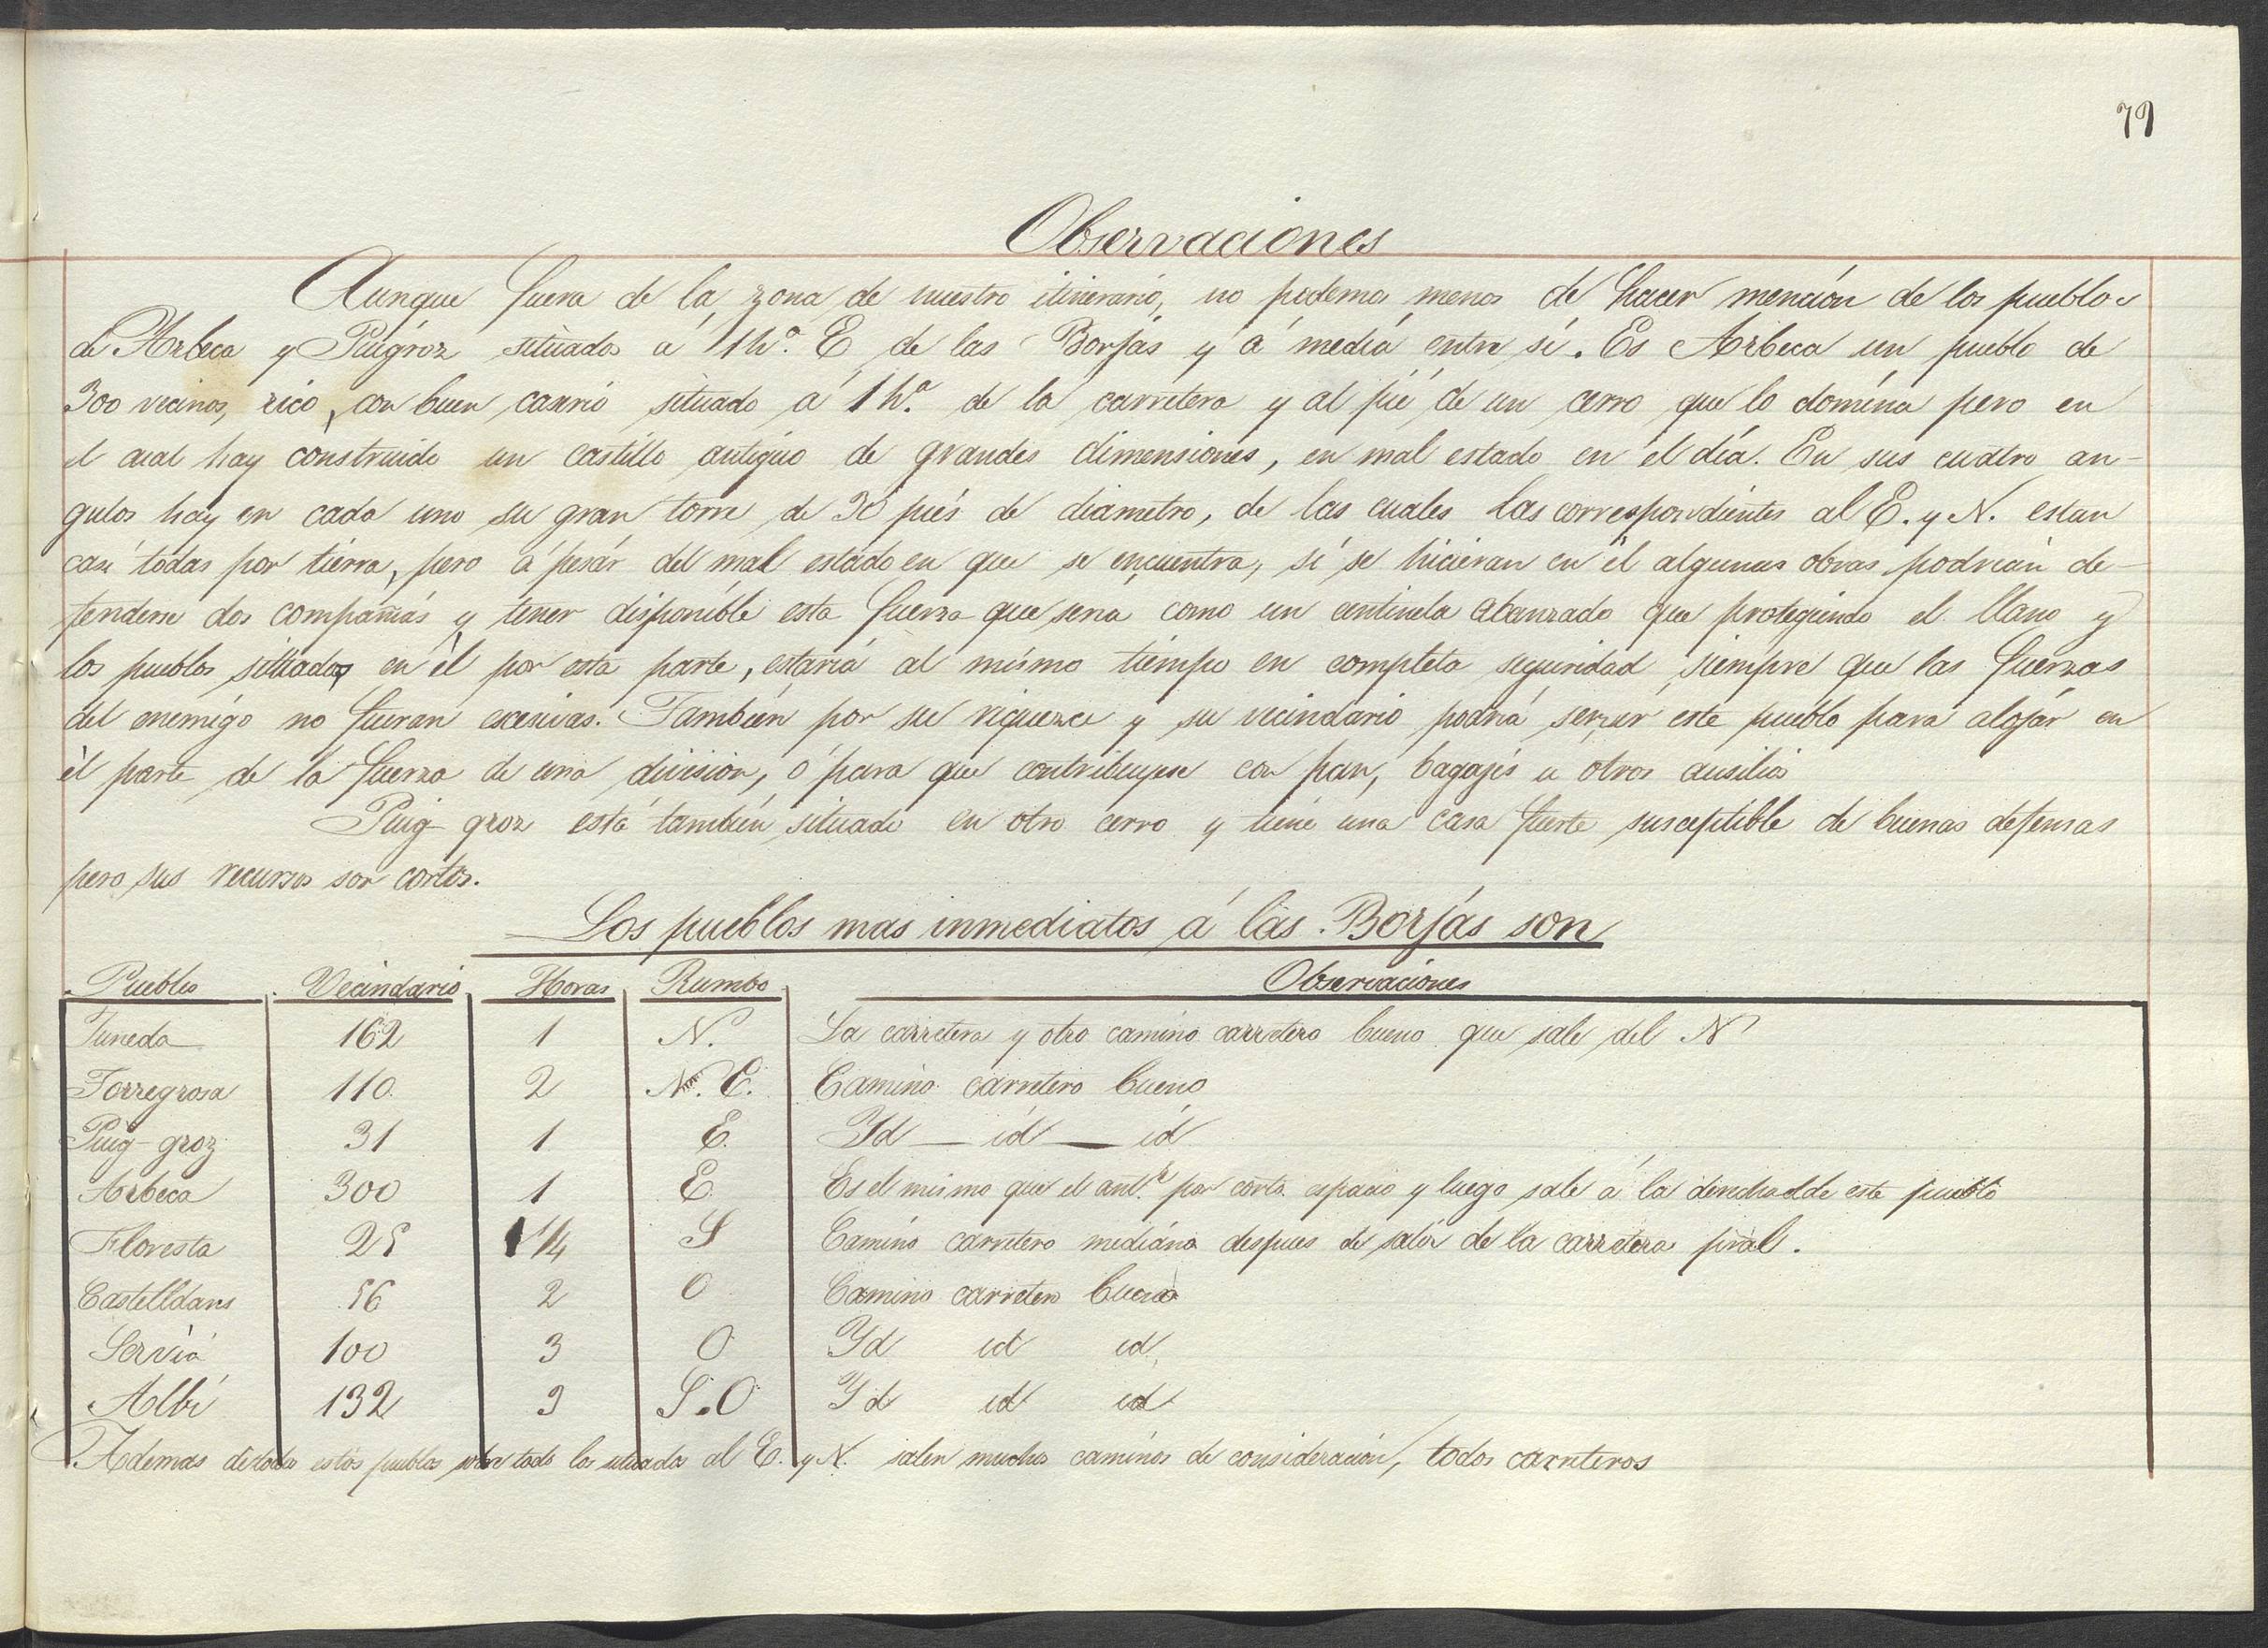 79
Observaciones
Aunque fuera de la zona de nuestro itinerario, no podemos menos de hacer mención de los pueblos
de Arbeca y Puigroz situados á 1 h.ª E de las Borjás y á media entre sí. Es Arbeca un pueblo de
300 vecinos, rico, con buen caserio situado á 1 h.ª de la carretera y al pié de un cerro que lo domina pero en
el cual hay construido un castillo antiguo de grandes dimensiones, en mal estado en el día. En sus cuatro an-
gulos hay en cada uno su gran torre de 30 piés de diametro, de las cuales las correspondientes al E. y N. estan
casi todas por tierra, pero á pesár del mal estado en que se encuentra, si se hicieran en él algunas obras podrian de-
fenderse dos compañias y tener disponible esta fuerza que seria como un centinela abanzado que protegiendo el llano y
los pueblos situados en él por esta parte, estaria al mismo tiempo en completa seguridad siempre que las fuerzas
del enemigo no fueran escesivas. También por su riqueza y su vecindario podrá servir este pueblo para alojár en
él parte de la fuerza de una division, ó para que contribuyese con pan, bagajes u otros ausilios
Puig-groz está también situado en otro cerro y tiene una casa fuerte susceptible de buenas defensas
pero sus recursos son cortos.
Los pueblos mas inmediatos á las Borjás son
Pueblos Vecindario Horas Rumbo Observaciones
Juneda 162 1 N. La carretera y otro camino carretero bueno que sale del N
Torregrosa 110 2 N. E. Camino carretero bueno
Puig-groz 31 1 E. Yd — id — id
Arbeca 300 1 E. Es el mismo que el ant.r por corto espacio y luego sale á la derecha de este pueblo
Floresta 25 1 1/4 S Camino carretero mediáno despues de salir de la carretera pral.
Castelldans 56 2 O Camino carretero bueno
Serviá 100 3 O Yd id id
Albi 132 3 S.O Yd id id
Ademas de todos estos pueblos sobre todo los situados al E. y N. salen muchos caminos de consideración, todos carreteros